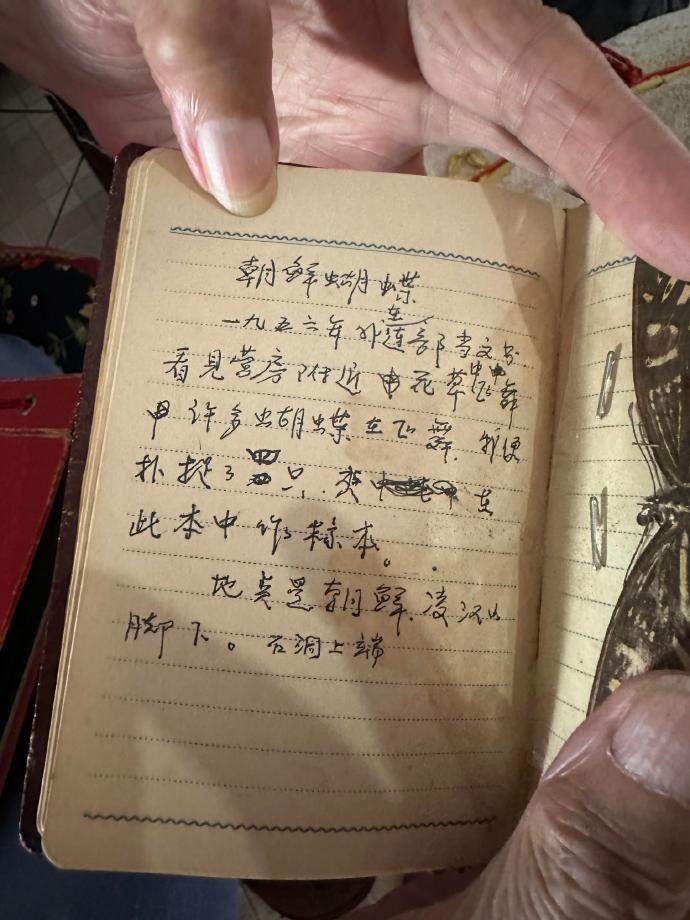 朝鲜蝴蝶
一九五六年 在连部当文书
看见营房附近花草中
中许多蝴蝶在飞舞.我便
扑捉了四只. 在
此本中作标本。
地点是朝鲜.凌汉山
脚下。石洞上端